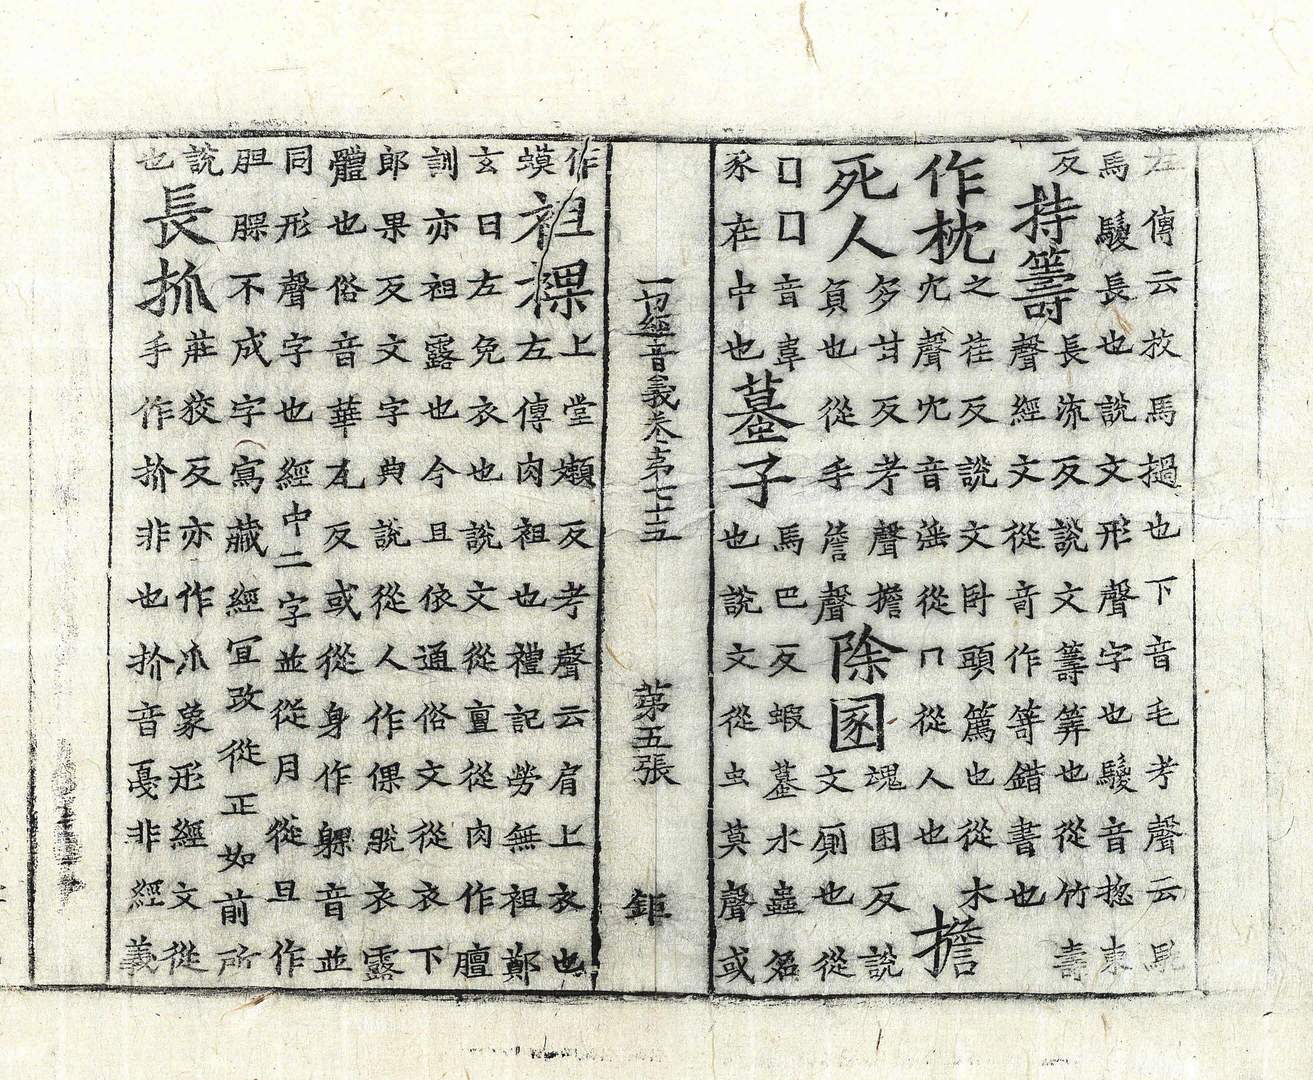 左傳云放馬撾也下音毛考聲云髦
馬騣長也說文形聲字也騣音揔東
反持籌長流反說文籌筭也從竹壽
聲經文從奇作䇓錯書也
作枕之荏反說文卧頭篤也從木
冘聲冘音滛從冂從人也擔
死人多甘反考聲擔
負也從手詹聲除圂魂困反說
文厠也從
囗囗音韋
豕在中也蟇子馬巴反蝦蟇水蟲名
也說文從虫莫聲或
一切經音義卷第七十五 第五張 鉅
作
蟆袒裸上堂嬾反考聲云肩上衣也
左傳肉袒也禮記勞無袒鄭
玄曰左免衣也說文從亶從肉作膻
訓亦袒露也今且依通俗文從衣下
郎果反文字典說從人作倮脫衣露
體也俗音華瓦反或從身作躶音並
同形聲字也經中二字並從月從旦作
胆腂不成字寫藏經冝改從正如前所
說
也長抓莊狡反亦作爪象形經文從
手作扴非也扴音戞非經義